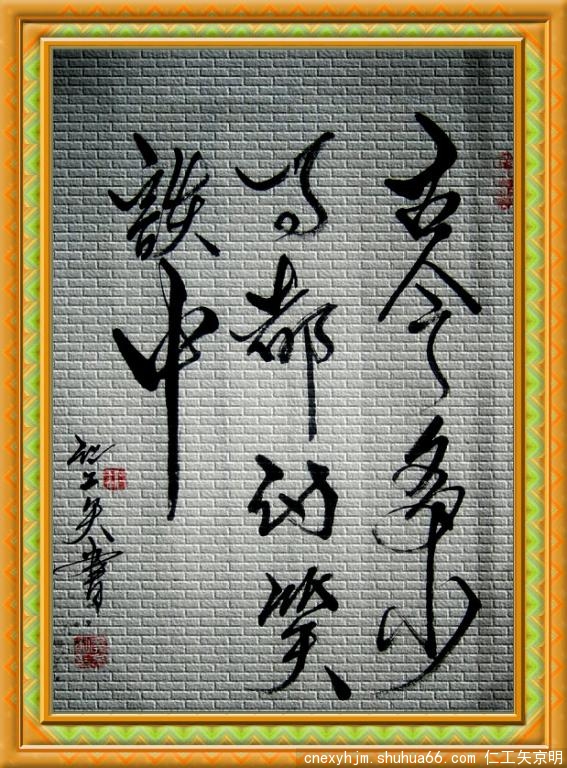 古今多少
事都付笑
談中
仁工矢書
cnexyhjm.shuhua66.com 仁工矢京明